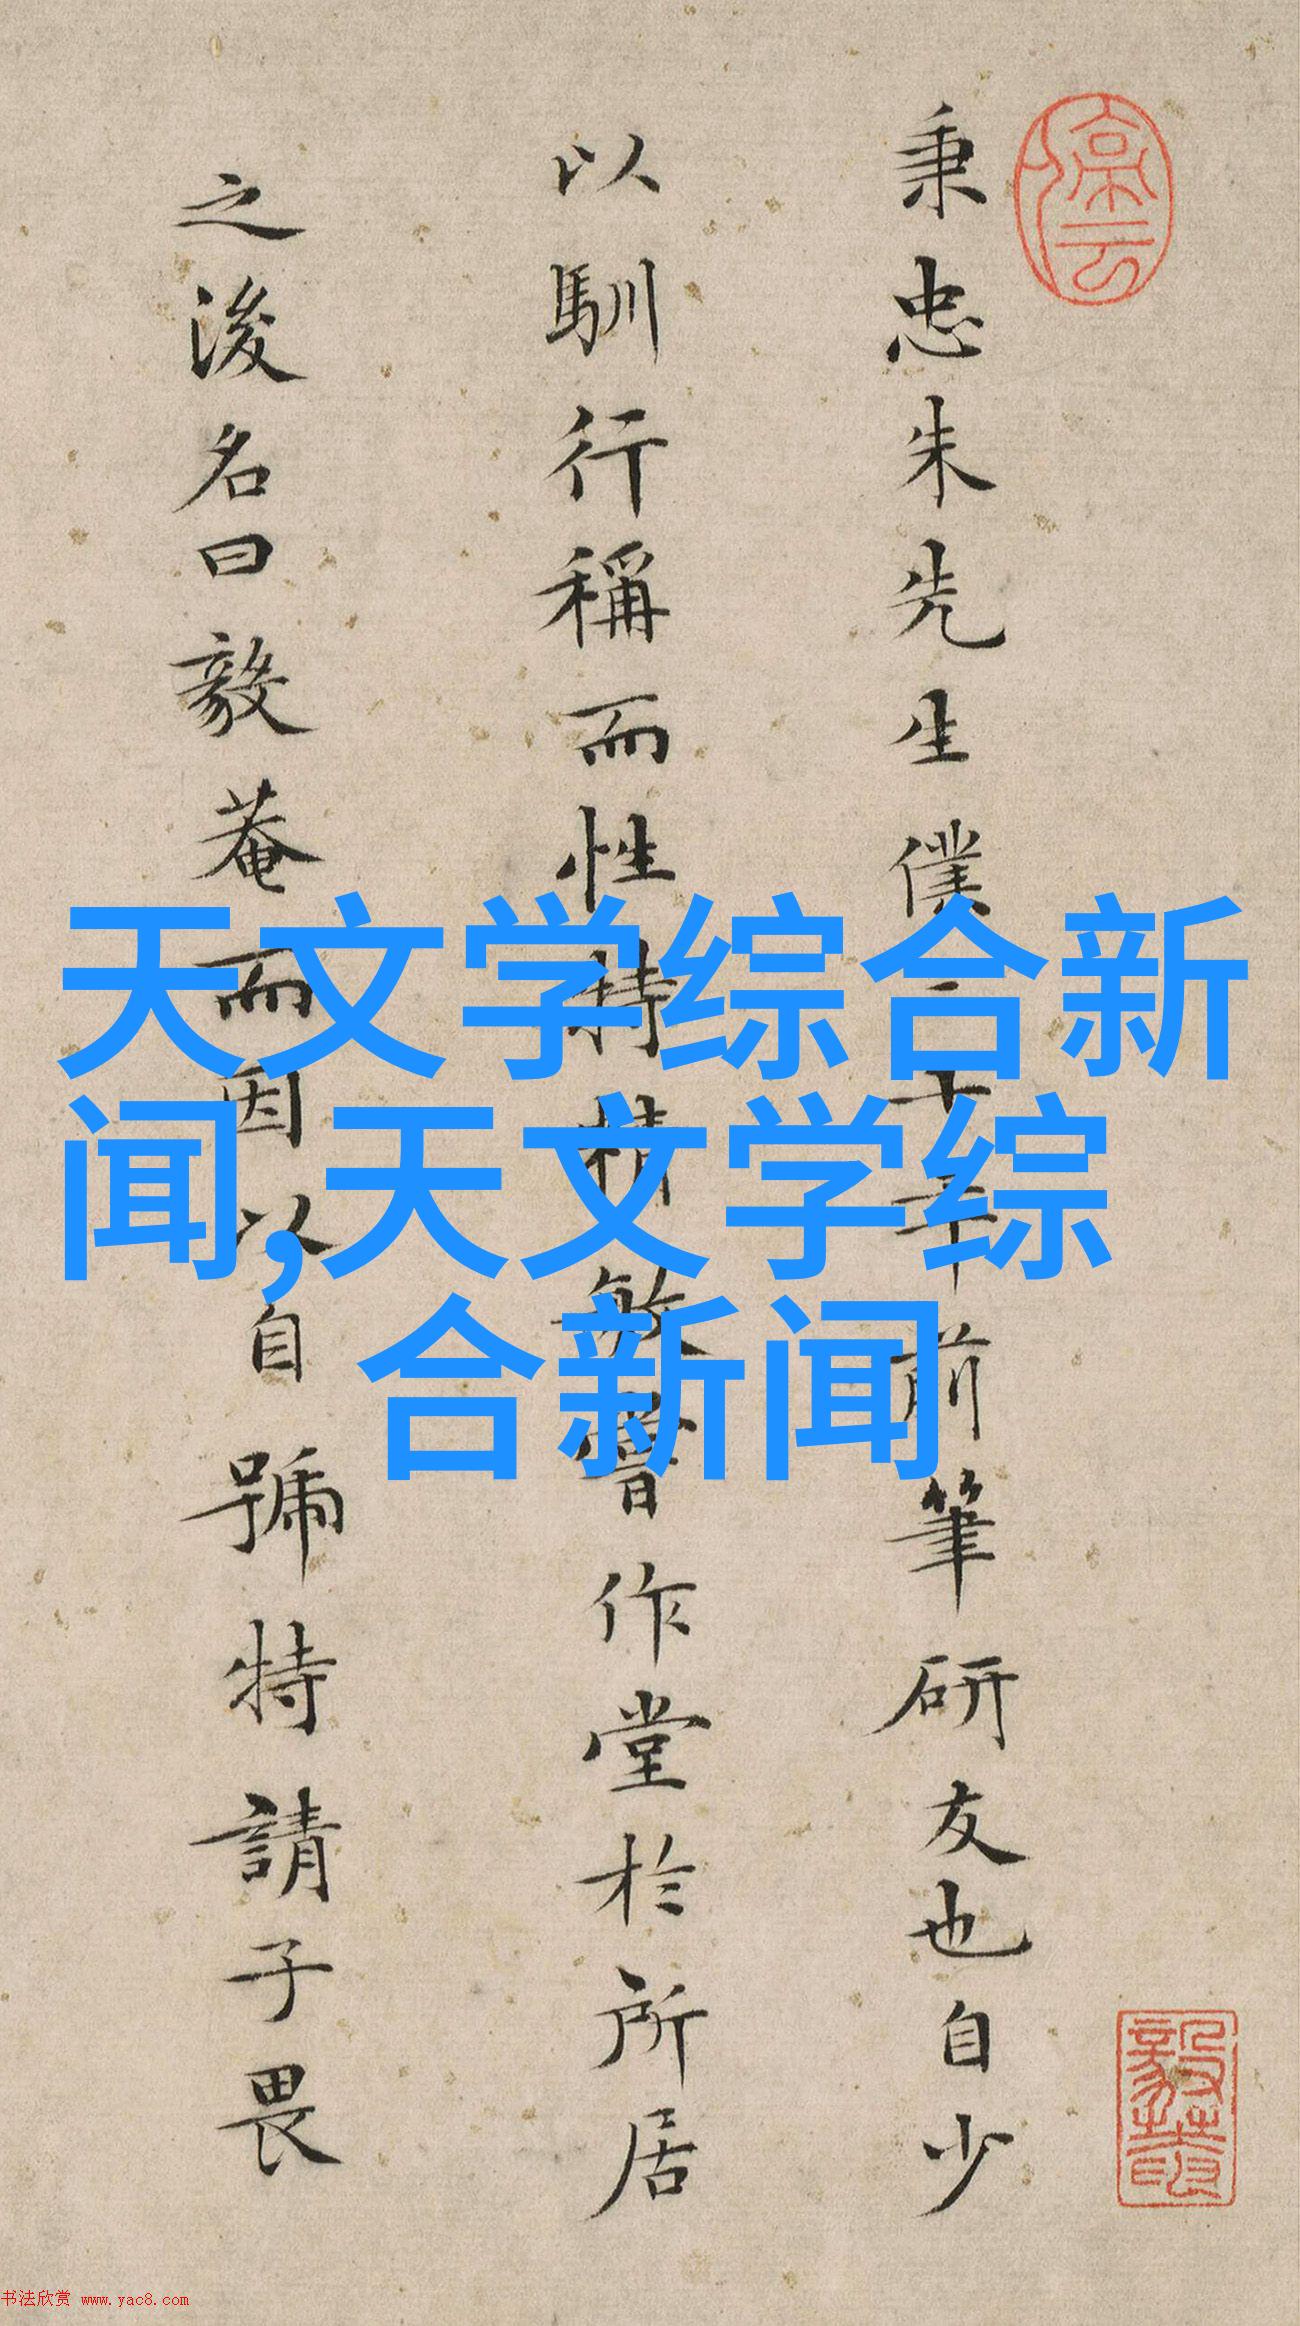 秉忠朱先生僕三十年前筆研友也自少
以馴行稱而性特精敏嘗作堂於所居
之後名曰毅菴而因以自號特請子畏
天文学综合新
闻,天文学综
合新闻
书法欣赏 www.yac8.com